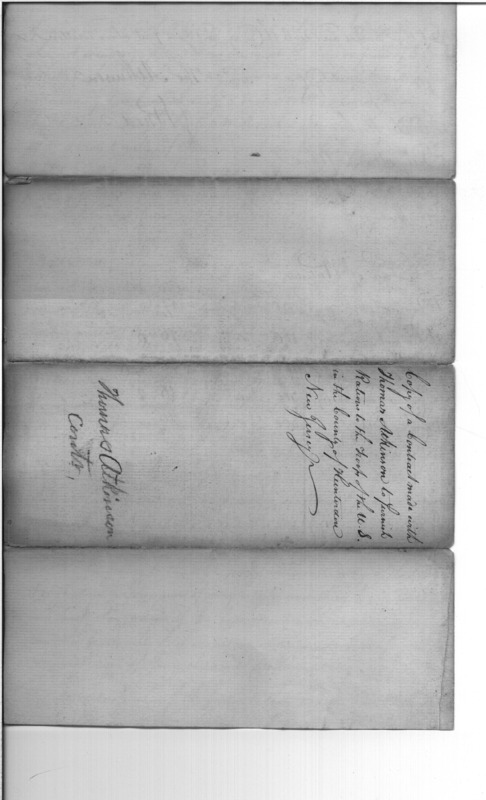 Copy of a Contract made with
Thomas Atkinson to furnish
Rations to the Troops of the U.S.
in the County of Hunterdon
New Jersey
Thomas Atkinson